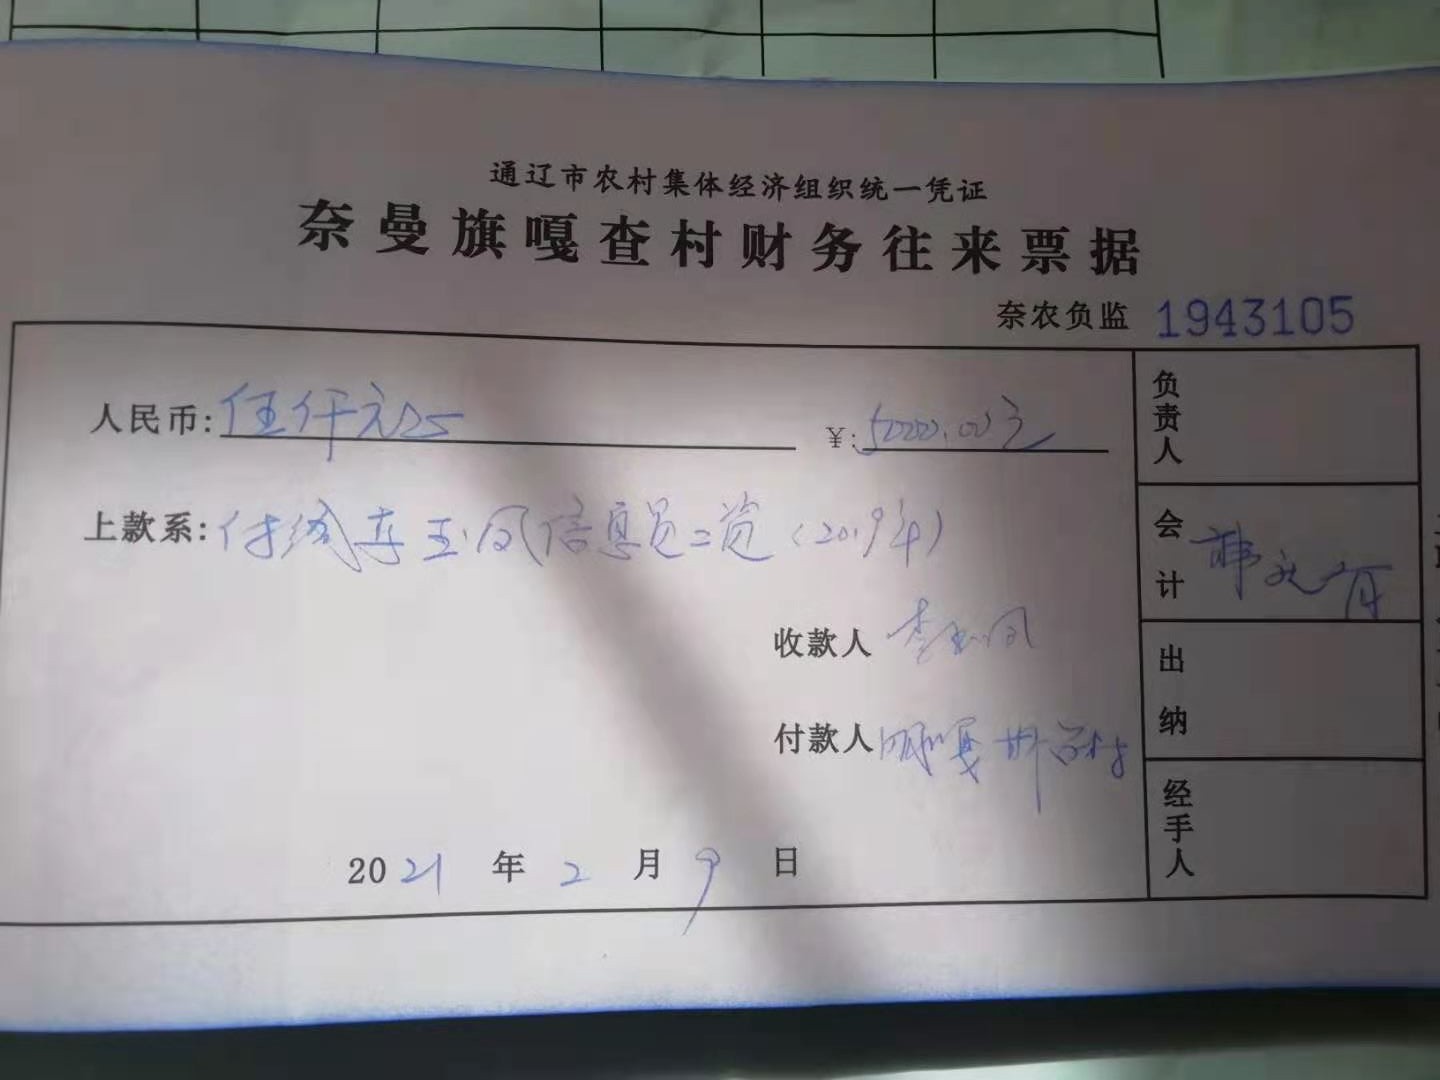 通辽市农村集体经济组织统一凭证
奈曼旗嘎查村财务往来票据
奈农负监 1943105
人民币: 伍仟元 ¥: 5000.00元
上款系: 付给李玉凤信息员工资(2019年)
收款人 李玉凤
付款人 嘎
2021 年 2 月 9 日
负责人
会计 韩
出纳
经手人